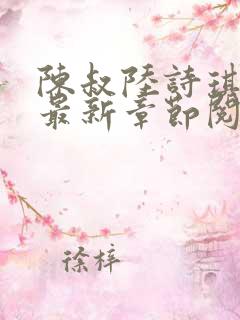 陳叔陸詩琪
最新章節閱
徐梓